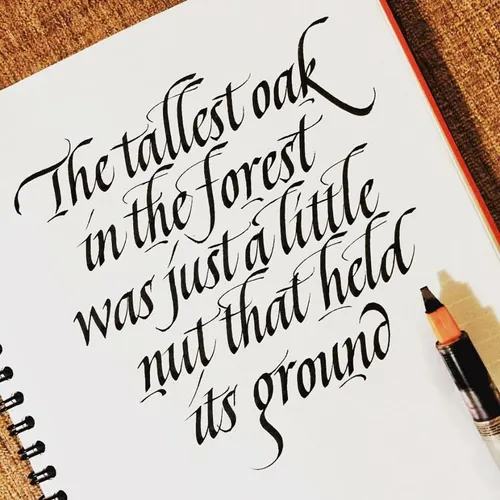 The tallest oak
in the forest
was just a little
nut that held
its ground